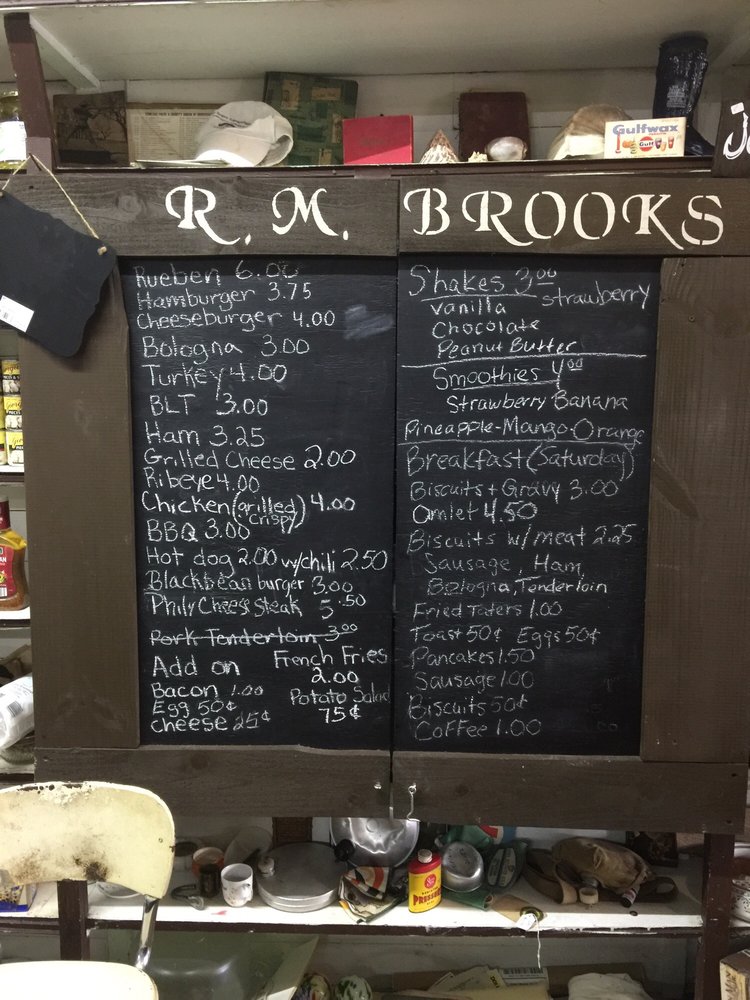 Gulfwax
Gulf
R. M. BROOKS
Rueben 6.00
Hamburger 3.75
Cheeseburger 4.00
Bologna 3.00
Turkey 4.00
BLT 3.00
Ham 3.25
Grilled Cheese 2.00
Ribeye 4.00
Chicken (grilled crispy) 4.00
BBQ 3.00
Hot dog 2.00 w/chili 2.50
Blackbean burger 3.00
Phily Cheese Steak 5.50
Pork Tenderloin 3.00
Add on
Bacon 1.00
Egg 50¢
cheese 25¢
French Fries
2.00
Potato Salad
75¢
Shakes 3.00
strawberry
vanilla
Chocolate
Peanut Butter
Smoothies 4.00
Strawberry Banana
Pineapple-Mango-Orange
Breakfast (Saturday)
Biscuits + Gravy 3.00
Omlet 4.50
Biscuits w/ meat 2.25
Sausage, Ham,
Bologna, Tenderloin
Fried Taters 1.00
Toast 50¢ Eggs 50¢
Pancakes 1.50
Sausage 1.00
Biscuits 50¢
Coffee 1.00